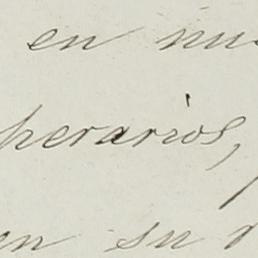 en nu
perarios,
en su